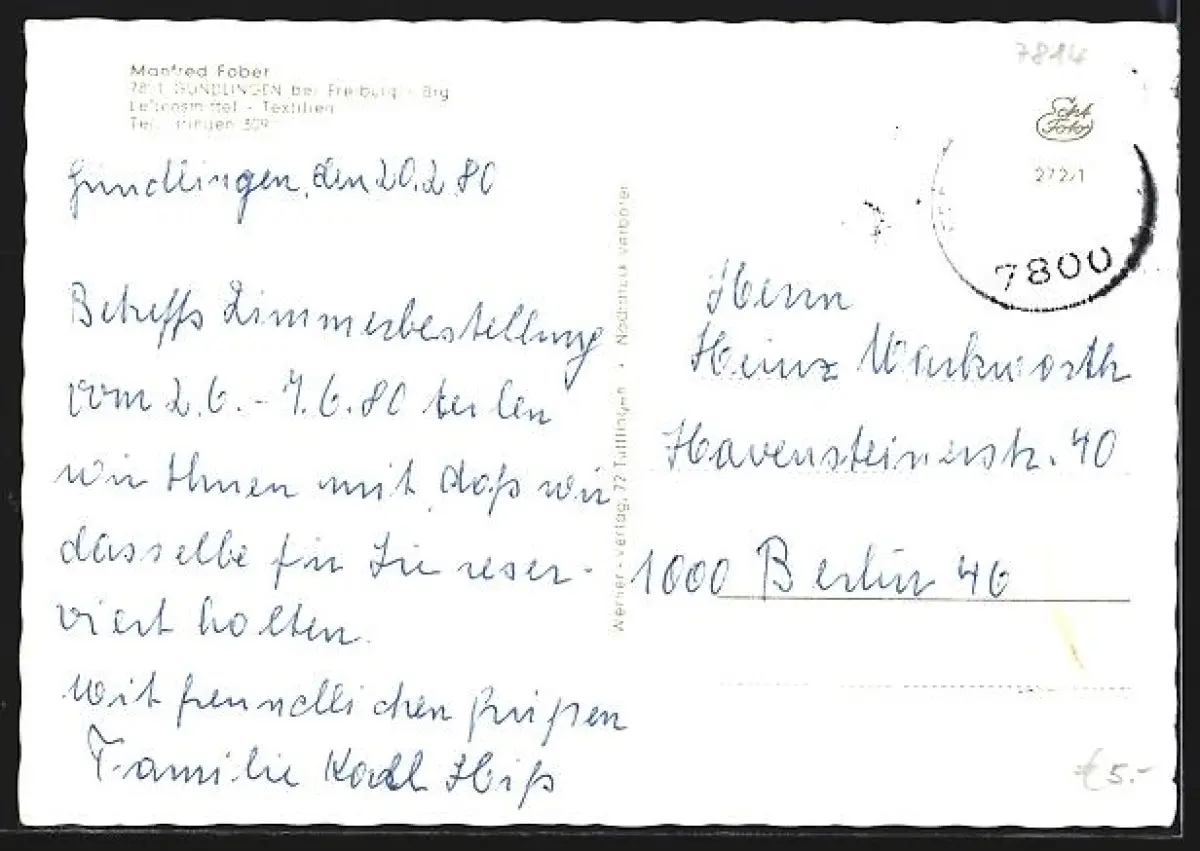 Manfred Faber
GÜNDLINGEN bei Freiburg - Brg
Lebensmittel - Textilien
Tel. 309
Gündlingen, den 20.2.80
Betreffs Zimmerbestellung
vom 2.6. - 7.6.80 teilen
wir Ihnen mit, daß wir
dasselbe für Sie reser-
viert halten.
Mit freundlichen Grüßen
Familie Karl Hiß
Werner-Verlag, 72 Tuttlingen · Nachdruck verboten
7814
Echt
Foto
272/1
7800
Herrn
Heinz Markworth
Havensteinerstr. 40
1000 Berlin 46
€ 5.-